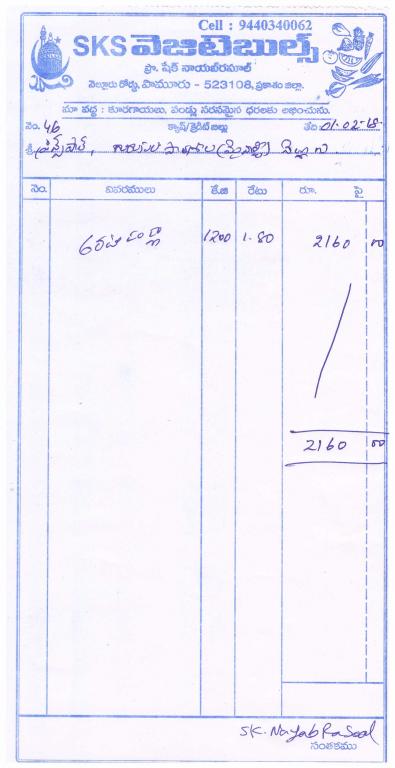 Cell : 9440340062
SKS వెజిటెబుల్స్
ప్రొ. షేక్ నాయబ్‌రసూల్
వెల్లూరు రోడ్డు, పామూరు - 523108, ప్రకాశం జిల్లా.
మా వద్ద : కూరగాయలు, పండ్లు సరసమైన ధరలకు లభించును.
నెం. 46 క్యాష్/క్రెడిట్ బిల్లు తేది 01-02-18
శ్రీ ప్రిన్సిపాల్,
నెం. వివరములు కే.జి రేటు రూ. పై
1200 1.80 2160 00
2160 00
SK. Nayab Rasool
సంతకము